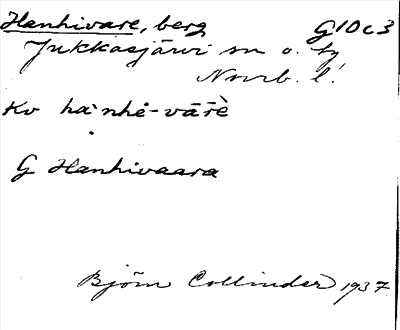 Hanhivare, berg G10c3
Jukkasjärvi sn o. by
Norrb. l.
Kv ha`nhè-vāre
G Hanhivaara
Björn Collinder 1937